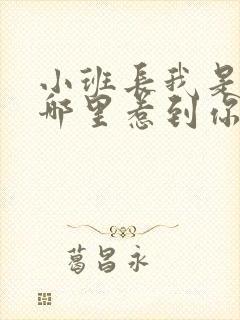 小班長我是
哪里惹到你
葛昌永